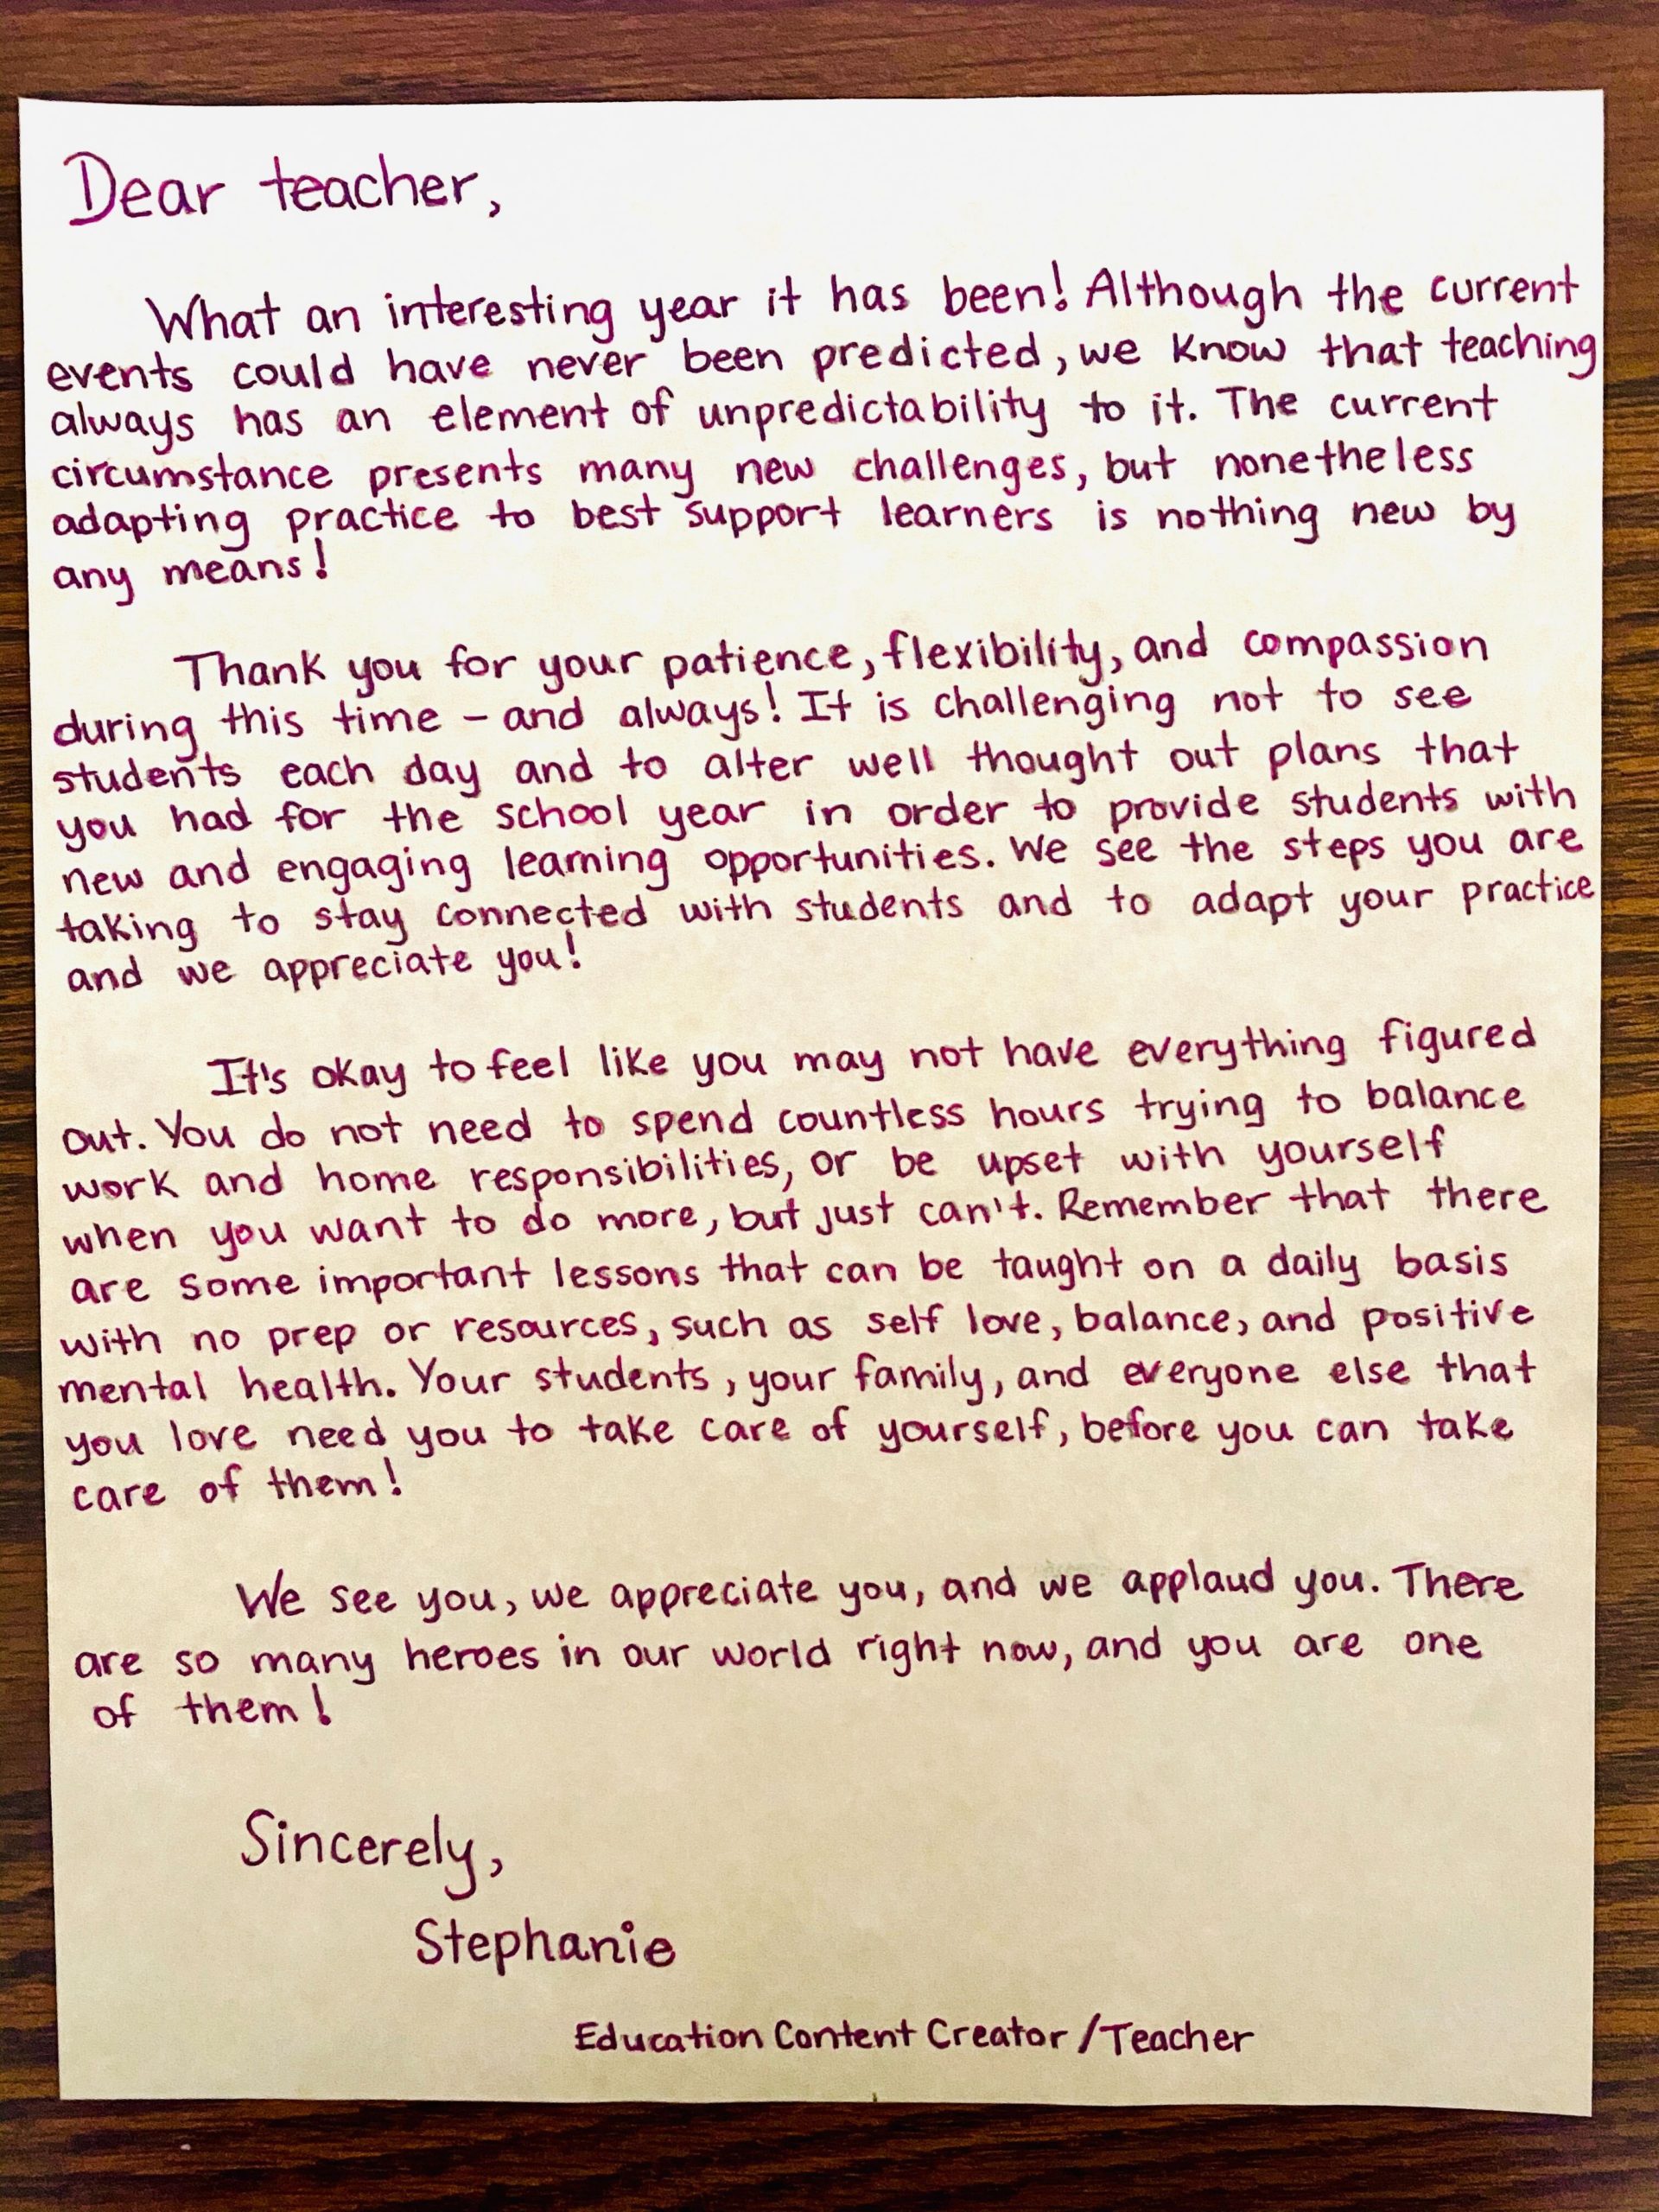 Dear teacher,
What an interesting year it has been! Although the current
events could have never been predicted, we know that teaching
always has an element of unpredictability to it. The current
circumstance presents many new challenges, but nonetheless
adapting practice to best support learners is nothing new by
any means!
Thank you for your patience, flexibility, and compassion
during this time - and always! It is challenging not to see
students each day and to alter well thought out plans that
you had for the school year in order to provide students with
new and engaging learning opportunities. We see the steps you are
taking to stay connected with students and to adapt your practice
and we appreciate you!
It's okay to feel like you may not have everything figured
out. You do not need to spend countless hours trying to balance
work and home responsibilities, or be upset with yourself
when you want to do more, but just can't. Remember that there
are some important lessons that can be taught on a daily basis
with no prep or resources, such as self love, balance, and positive
mental health. Your students, your family, and everyone else that
you love need you to take care of yourself, before you can take
care of them!
We see you, we appreciate you, and we applaud you. There
are so many heroes in our world right now, and you are one
of them!
Sincerely,
Stephanie
Education Content Creator/Teacher